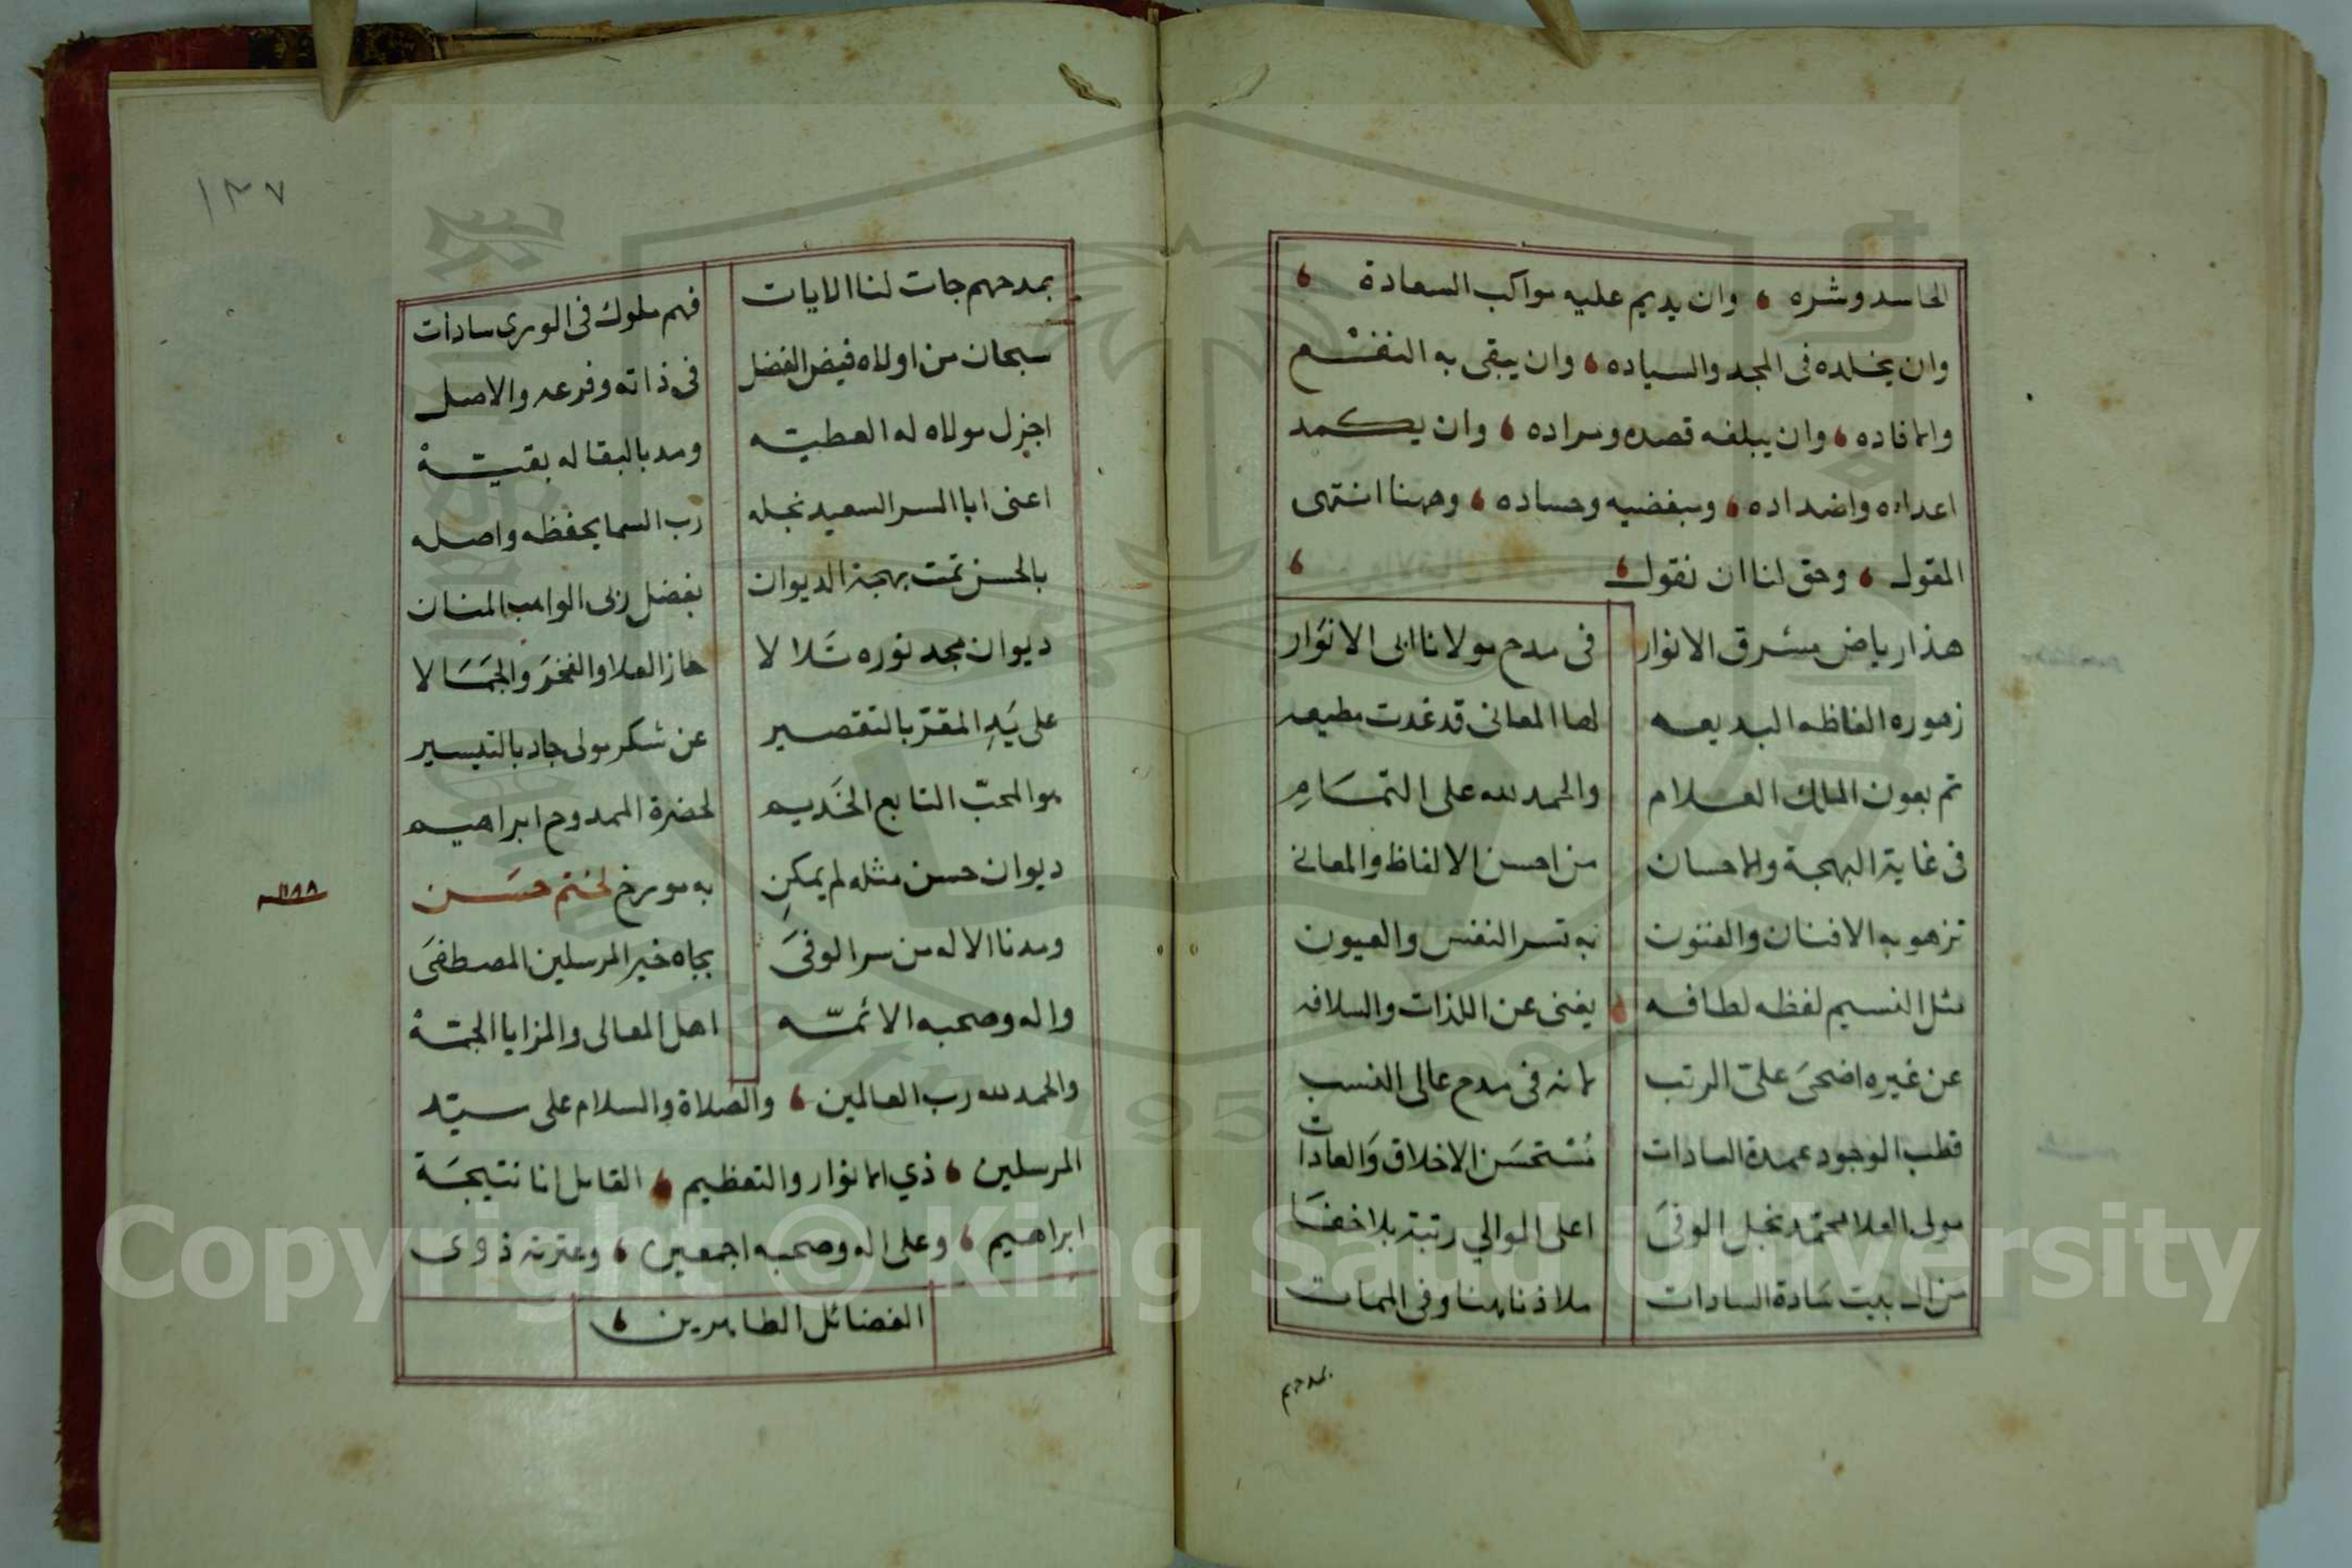 الحاسد وشره ، وان يديم عليه مواكب السعادة ،
وان يخلده فى المجد والسياده ، وان يبقى به النفع
والافاده ، وان يبلغه قصده ومراده ، وان يكمد
اعداه واضداده ، ومبغضيه وحساده ، وههنا انتهى
المقول ، وحق لنا ان نقول ، ،
هذا رياض مشرق الانوار في مدح مولانا ابى الانوار
زهوره الفاظه البديعه لها المعانى قد غدت مطيعه
تم بعون الملك العلام والحمد لله على التمام
فى غاية البهجة والاحسان من احسن الالفاظ والمعانى
تزهو به الافنان والفنون به تسر النفس والعيون
مثل النسيم لفظه لطافه ، يغنى عن اللذات والسلافه
عن غيره اضحى علىّ الرتب لانه فى مدح عالى النسب
قطب الوجود عمدة السادات مستحسن الاخلاق والعادات
مولى العلا محمد نجل الوفى اعلى الموالي رتبة بلا خفا
من ال بيت سادة السادات ملاذنا هنا وفى الممات
بمدحهم
١٣٧
بمدحهم جات لنا الايات فهم ملوك فى الورى سادات
سبحان من اولاه فيض الفضل فى ذاته وفرعه والاصل
اجزل مولاه له العطيه ومد بالبقا له بقية
اعنى ابا السر السعيد نجله رب السما يحفظه واصله
بالحسن تمت بهجة الديوان بفضل ربى الواهب المنان
ديوان مجد نوره تلالا حاز العلا والفخر والجمالا
على يد المقرّ بالتقصير عن شكر مولى جاد بالتيسير
هو المحبّ التابع الخديم لحضرة الممدوح ابراهيم
ديوان حسن مثله لم يمكن به مورخ لختم حسن
١١٨٨
ومدنا الاله من سر الوفى بجاه خير المرسلين المصطفى
واله وصحبه الائمّه اهل المعالى والمزايا الجمّة
والحمد لله رب العالمين ، والصلاة والسلام على سيّد
المرسلين ، ذي الانوار والتعظيم ، القايل انا نتيجة
ابراهيم ، وعلى اله وصحبه اجمعين ، وعترته ذوى
الفضائل الطاهرين ،
Copyright © King Saud University
1957